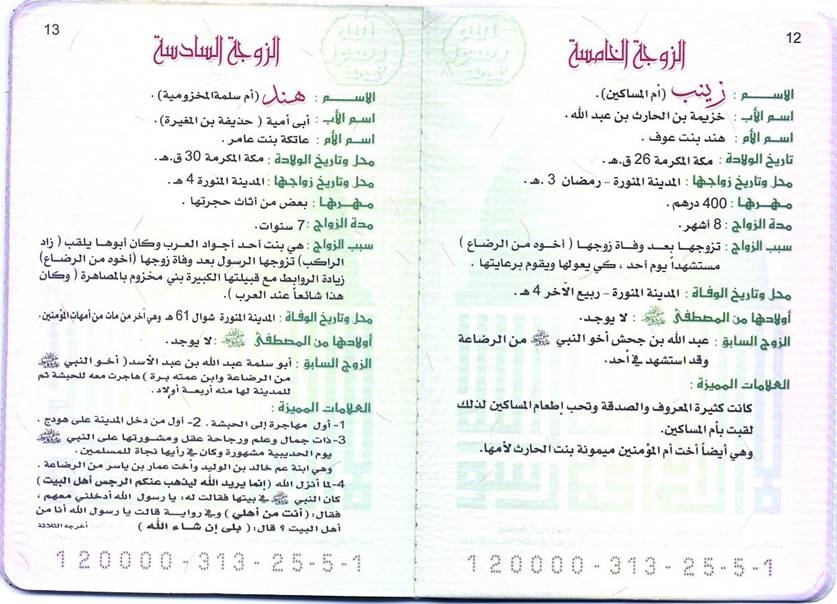 12
الزوجة الخامسة
الاســـم : زينب (أم المساكين).
اسم الأب : خزيمة بن الحارث بن عبد الله.
اسم الأم : هند بنت عوف.
تاريخ الولادة : مكة المكرمة 26 ق.هـ.
محل وتاريخ زواجها : المدينة المنورة – رمضان 3 .هـ.
مهـرهـا : 400 درهم.
مدة الزواج : 8 أشهر.
سبب الزواج : تزوجها بعد وفاة زوجها ( أخوه من الرضاع )
مستشهداً يوم أحد ، كي يعولها ويقوم برعايتها .
محل وتاريخ الوفاة : المدينة المنورة - ربيع الآخر 4 هـ.
أولادها من المصطفى ﷺ : لا يوجد.
الزوج السابق : عبد الله بن جحش أخو النبي ﷺ من الرضاعة
وقد استشهد في أحد.
العلامات المميزة :
كانت كثيرة المعروف والصدقة وتحب إطعام المساكين لذلك
لقبت بأم المساكين.
وهي أيضاً أخت أم المؤمنين ميمونة بنت الحارث لأمها.
120000-313-25-5-1
13
الزوجة السادسة
الاســـم : هند (أم سلمة المخزومية) .
اسم الأب : أبى أمية ( حذيفة بن المغيرة).
اسم الأم : عاتكة بنت عامر .
محل وتاريخ الولادة : مكة المكرمة 30 ق.هـ.
محل وتاريخ زواجها : المدينة المنورة 4 هـ.
مهـرهـا : بعض من أثاث حجرتها .
مدة الزواج : 7 سنوات.
سبب الزواج : هي بنت أحد أجواد العرب وكان أبوها يلقب ( زاد
الراكب) تزوجها الرسول بعد وفاة زوجها (أخوه من الرضاع)
زيادة الروابط مع قبيلتها الكبيرة بني مخزوم بالمصاهرة ( وكان
هذا شائعاً عند العرب ).
محل وتاريخ الوفاة : المدينة المنورة شوال 61 هـ وهي آخر من مات من أمهات المؤمنين.
أولادها من المصطفى ﷺ : لا يوجد.
الزوج السابق : أبو سلمة عبد الله بن عبد الأسد ( أخو النبي ﷺ
من الرضاعة وابن عمته برة ) هاجرت معه للحبشة ثم
للمدينة لها منه أربعة أولاد.
العلامات المميزة :
1- أول مهاجرة إلى الحبشة . 2- أول من دخل المدينة على هودج .
3- ذات جمال وعلم ورجاحة عقل ومشورتها على النبي ﷺ
يوم الحديبية مشهورة وكان في رأيها نجاة للمسلمين.
وهي ابنة عم خالد بن الوليد وأخت عمار بن ياسر من الرضاعة .
4- لما أنزل الله (إنما يريد الله ليذهب عنكم الرجس أهل البيت )
كان النبي ﷺ في بيتها فقالت له: يا رسول الله أدخلني معهم ،
فقال: ( أنت من أهلي ) وفي رواية قالت يا رسول الله أنا من
أهل البيت ؟ قال: ( بلى إن شاء الله ) أخرجه الثلاثة
120000-313-25-5-1